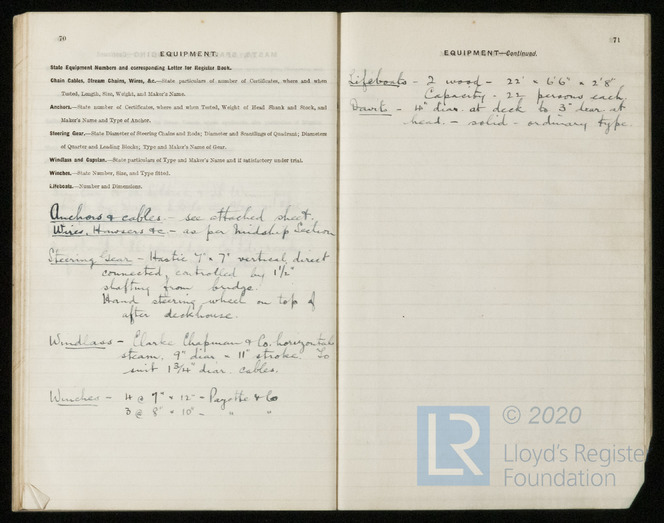 70
EQUIPMENT.
State Equipment Numbers and corresponding Letter for Register Book.
Chain Cables, Stream Chains, Wires, &c.—State particulars of number of Certificates, where and when
Tested, Length, Size, Weight, and Maker's Name.
Anchors.—State number of Certificates, where and when Tested, Weight of Head Shank and Stock, and
Maker's Name and Type of Anchor.
Steering Gear.—State Diameter of Steering Chains and Rods; Diameter and Scantlings of Quadrant; Diameters
of Quarter and Leading Blocks; Type and Maker's Name of Gear.
Windlass and Capstan.—State particulars of Type and Maker's Name and if satisfactory under trial.
Winches.—State Number, Size, and Type fitted.
Lifeboats.—Number and Dimensions.
Anchors & cables - see attached sheet.
Wires, Hawsers &c - as per Midship Section
Steering Gear - Hastie 7" × 7" vertical, direct
connected, controlled by 1½"
shafting from bridge.
Hand steering wheel on top of
after deckhouse.
Windlass - Clarke Chapman & Co. horizontal
steam. 9" diar × 11" stroke. To
suit 1 3/4" diar. cables.
Winches - 4 @ 7" × 12" - Payette & Co
3 @ 8" × 10" - " "
71
EQUIPMENT—Continued.
Lifeboats - 2 wood - 22' × 6'6" × 2'8"
Capacity - 22 persons each.
Davits - 4" diar. at deck to 3" diar at
head. - solid - ordinary type.
LR
© 2020
Lloyd's Register
Foundation